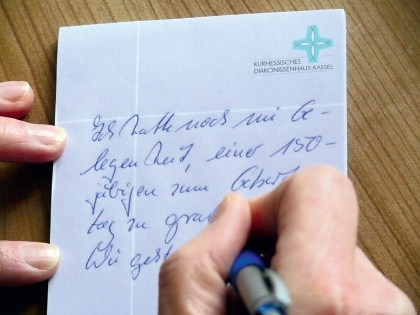 KURHESSISCHES
DIAKONISSENHAUS KASSEL
Ich hatte noch nie Ge-
legenheit, einer 150-
jährigen zum Geburts
tag zu gra
Wie gest